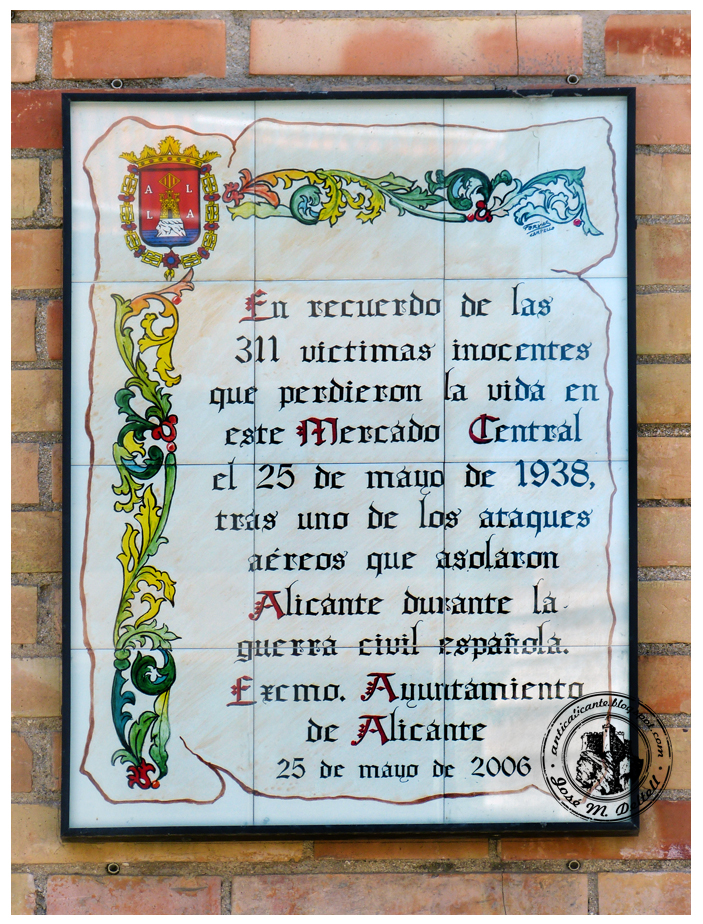 A L
L A
En recuerdo de las
311 victimas inocentes
que perdieron la vida en
este Mercado Central
el 25 de mayo de 1938,
tras uno de los ataques
aéreos que asolaron
Alicante durante la
guerra civil española.
Excmo. Ayuntamiento
de Alicante
25 de mayo de 2006
anticalicante.blogspot.com
José M.